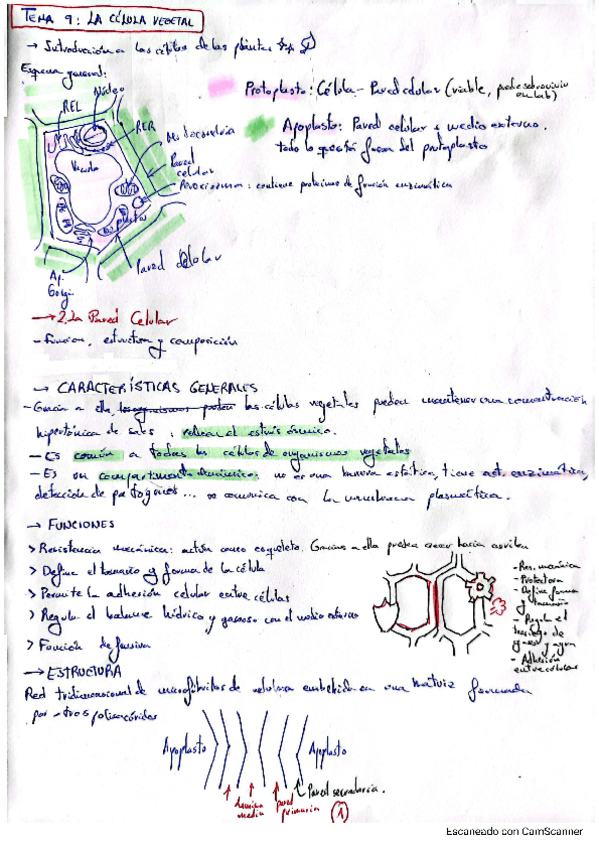 TEMA 9: LA CÉLULA VEGETAL
→ Introducción a las células de las plantas
Esquema general:
Núcleo
REL
RER
Mitocondria
Vacuola
Pared
celular
Peroxisoma: contiene proteínas de función enzimática
plasto
Pared celular
Ap.
Golgi
Protoplasto: Célula - Pared celular (viable, puede sobrevivir
en lab)
Apoplasto: Pared celular + medio externo.
todo lo que está fuera del protoplasto
→ 2. La Pared Celular
- Función, estructura y composición
→ CARACTERÍSTICAS GENERALES
- Gracias a ella, las células vegetales pueden mantener una concentración
hipertónica de sales, reducen el estrés osmótico.
- Es común a todas las células de organismos vegetales
- Es un compartimento dinámico: no es una barrera estática, tiene act. enzimática,
detección de patógenos... se comunica con la membrana plasmática.
→ FUNCIONES
> Resistencia mecánica: actúa como esqueleto. Gracias a ella pueden crecer hacia arriba
> Define el tamaño y forma de la célula
> Permite la adhesión celular entre células
> Regula el balance hídrico y gaseoso con el medio externo
> Función defensiva
- Res. mecánica
- Protectora
- Define forma
y tamaño
- Regula el
de
gases y agua
- Adhesión
entre células
→ ESTRUCTURA
Red tridimensional de microfibrillas de celulosa embebida en una matriz formada
por otros polisacáridos
Apoplasto
Apoplasto
lámina
media
pared
primaria
Pared secundaria.
1
Escaneado con CamScanner